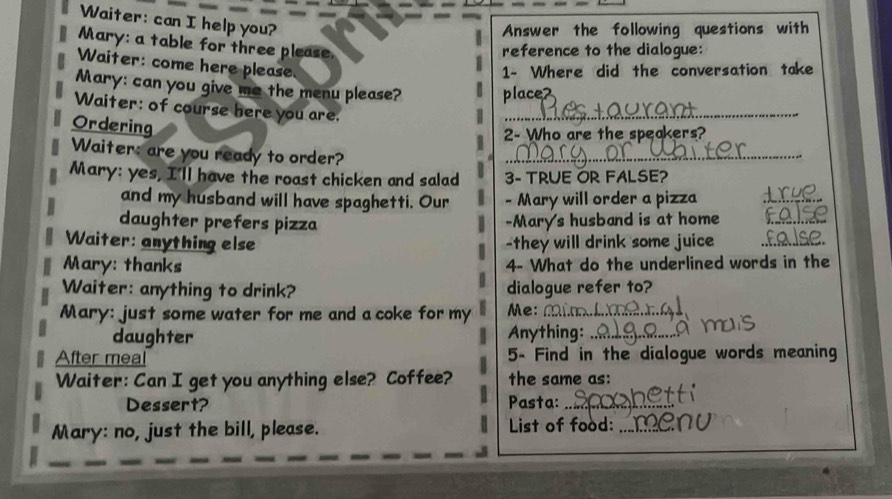 Waiter: can I help you?
Mary: a table for three please.
Waiter: come here please.
Mary: can you give me the menu please?
Waiter: of course here you are.
Ordering
Waiter: are you ready to order?
Mary: yes, I'll have the roast chicken and salad
and my husband will have spaghetti. Our
daughter prefers pizza
Waiter: anything else
Mary: thanks
Waiter: anything to drink?
Mary: just some water for me and a coke for my
daughter
After meal
Waiter: Can I get you anything else? Coffee?
Dessert?
Mary: no, just the bill, please.
Answer the following questions with
reference to the dialogue:
1- Where did the conversation take
place?
Restaurant
2- Who are the speakers?
Mary or Waiter
3- TRUE OR FALSE?
- Mary will order a pizza true
-Mary's husband is at home false
-they will drink some juice false
4- What do the underlined words in the
dialogue refer to?
Me:
Anything: algo a mais
5- Find in the dialogue words meaning
the same as:
Pasta: Spaghetti
List of food: menu